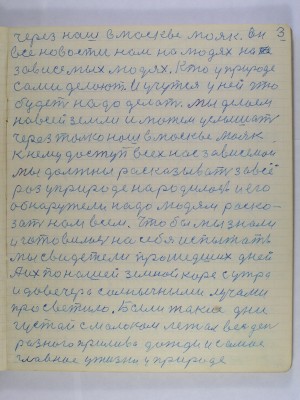 через наш в москве маяк. Он 3
все новости нам на людях на
зависемых людях. Кто у природе
сами делают. И учутся у ней это
будет надо делать. мы делаем
на всей земли и можем услышать
через только наш в москве маяк
к нему доступ всех нас зависемое
мы должны рассказывать за всё
раз у природе народилось и его
обнаружели надо людям расказ
зать нам всем. Чтобы мы знали
и готовились на себя испытать
мы свидетели прошедших дней
А их по нашей земной коре с утра
и до вечера солнычными лучами
просветило. Были такие дни
густай с малоком летал везде
разного прилива дожди и самое
главное у жизни у природе